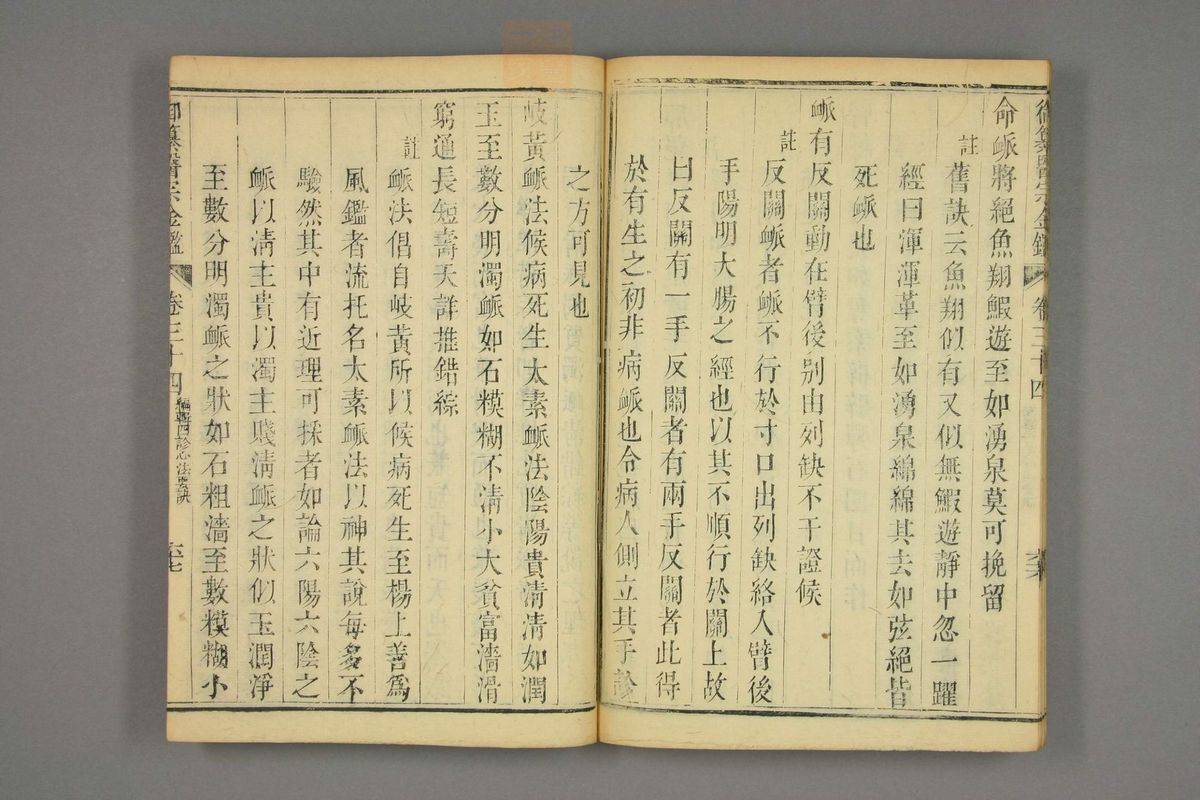 御纂醫宗金鑑 卷三十四
命脈將絕魚翔鰕遊至如湧泉莫可挽留
註 舊訣云魚翔似有又似無鰕遊靜中忽一躍
經曰渾渾革至如湧泉綿綿其去如弦絕皆
死脈也
脈有反關動在臂後别由列缺不干證候
註 反關脈者脈不行於寸口出列缺絡入臂後
手陽明大腸之經也以其不順行於關上故
曰反關有一手反關者有兩手反關者此得
於有生之初非病脈也令病人側立其手診
之方可見也
岐黃脈法候病死生太素脈法陰陽貴淸淸如潤
玉至數分明濁脈如石模糊不淸小大貧富濇滑
窮通長短壽夭詳推錯綜
註 脈法倡自岐黃所以候病死生至楊上善爲
風鑑者流托名太素脈法以神其說每多不
驗然其中有近理可採者如論六陽六陰之
脈以淸主貴以濁主賤淸脈之狀似玉潤淨
至數分明濁脈之狀如石粗濇至數模糊小
御纂醫宗金鑑 卷三十四 編輯四診心法要訣 六七